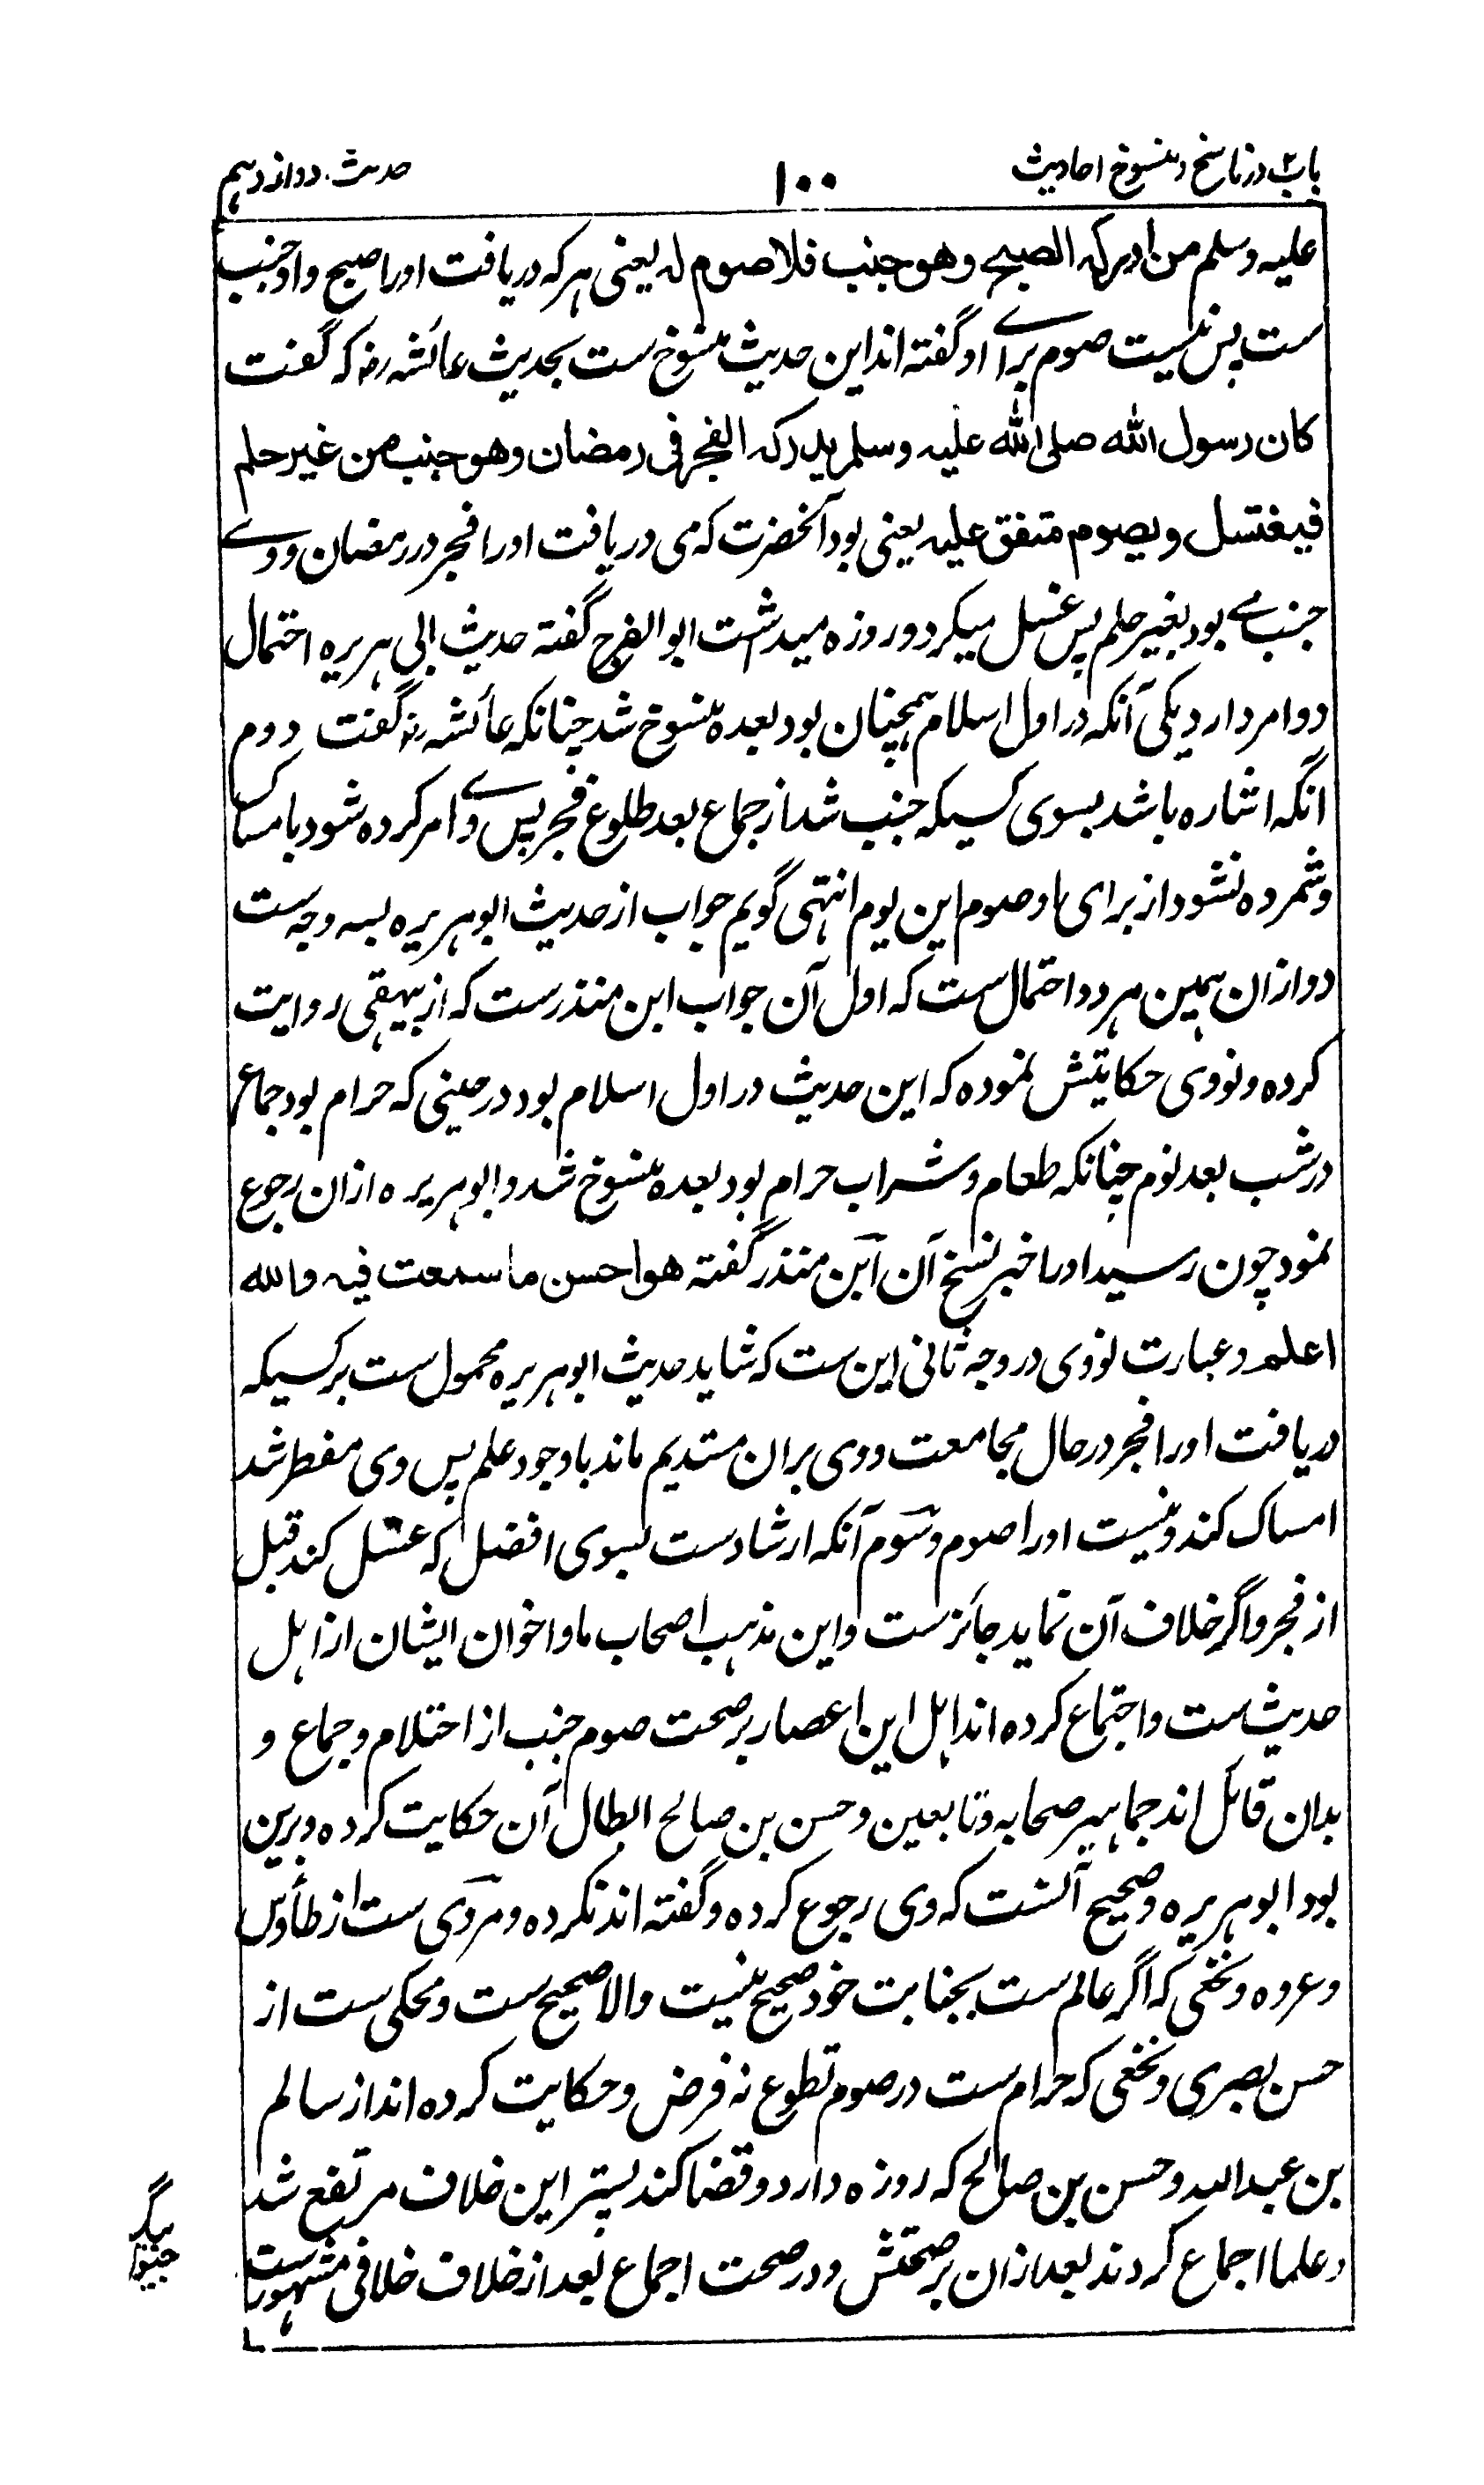 باب ۲ در ناسخ و منسوخ احادیث
۱۰۰
حدیث دوازدہم
علیہ وسلم من ادرکہ الصبح وھو جنب فلا صوم لہ یعنی ہرکہ دریافت اورا صبح و او جنب
ست پس نیست صوم برای او گفتہ اند این حدیث منسوخ ست بحدیث عائشہ رض کہ گفت
کان رسول اللہ صلی اللہ علیہ وسلم یدرکہ الفجر فی رمضان وھو جنب من غیر حلم
فیغتسل ویصوم متفق علیہ یعنی بود آنحضرت کہ می دریافت اورا فجر در رمضان و وے
جنب مے بود بغیر حلم پس غسل میکرد و روزہ میداشت ابو الفرج گفتہ حدیث ابی ہریرہ احتمال
دو امر دارد یکی آنکہ در اول اسلام ہمچنان بود بعدہ منسوخ شد چنانکہ عائشہ رض گفت دوم
آنکہ اشارہ باشد بسوی کسیکہ جنب شد از جماع بعد طلوع فجر پس وے امر کردہ شود بامساک
و شمردہ نشود از برای او صوم این یوم انتہی گویم جواب از حدیث ابو ہریرہ بسہ وجہ ست
دو ازان ہمین ہر دو احتمال ست کہ اول آن جواب ابن منذر ست کہ از بیہقی روایت
کردہ و نووی حکایتش نمودہ کہ این حدیث در اول اسلام بود در حینی کہ حرام بود جماع
در شب بعد نوم چنانکہ طعام و شراب حرام بود بعدہ منسوخ شد و ابو ہریرہ ازان رجوع
نمود چون رسید اورا خبر نسخ آن ابن منذر گفتہ ھو احسن ما سمعت فیہ واللہ
اعلم و عبارت نووی در وجہ ثانی این ست کہ شاید حدیث ابو ہریرہ محمول ست بر کسیکہ
دریافت اورا فجر در حال مجامعت و وی بران مستدیم ماند با وجود علم پس وی مفطر شد
امساک کند و نیست اورا صوم و سوم آنکہ ارشاد ست بسوی افضل کہ غسل کند قبل
از فجر و اگر خلاف آن نماید جائز ست و این مذہب اصحاب ما و اخوان ایشان از اہل
حدیث ست و اجتماع کردہ اند اہل این اعصار بر صحت صوم جنب از احتلام و جماع و
بدان قائل اند جماہیر صحابہ و تابعین و حسن بن صالح ابطال آن حکایت کردہ و برین
بود ابو ہریرہ و صحیح آنست کہ وی رجوع کردہ و گفتہ اند نکردہ و مروی ست از طاؤس
و عروہ و نخعی کہ اگر عالم ست بجنابت خود صحیح نیست والا صحیح ست و محکی ست از
حسن بصری و نخعی کہ حرام ست در صوم تطوع نہ فرض و حکایت کردہ اند از سالم
بن عبد اللہ و حسن بن صالح کہ روزہ دارد و قضا کند پستر این خلاف مرتفع شد
و علما اجماع کردند بعد ازان بر صحتش و در صحت اجماع بعد از خلاف خلافی مشہور ست